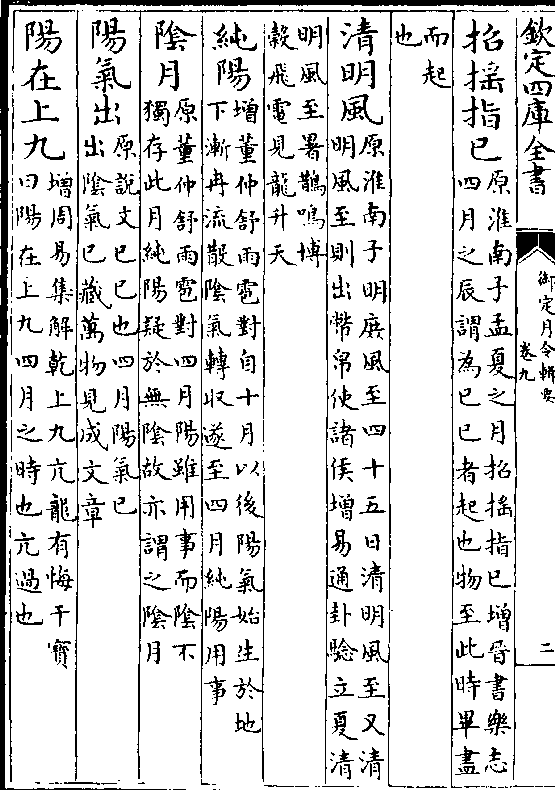 欽定四庫全書
御定月令輯要
卷九
二
招搖指巳
原淮南子孟夏之月招搖指巳增晉書樂志
四月之辰謂為巳巳者起也物至此時畢盡
而起
也
清明風
原淮南子明庶風至四十五日清明風至又清
明風至則出幣帛使諸侯增易通卦驗立夏清
明風至暑鵲鳴博
穀飛電見龍升天
純陽
增董仲舒雨雹對自十月以後陽氣始生於地
下漸冉流散陰氣轉收遂至四月純陽用事
陰月
原董仲舒雨雹對四月陽雖用事而陰不
獨存此月純陽疑於無陰故亦謂之陰月
陽氣出
原說文巳巳也四月陽氣巳
出陰氣巳藏萬物見成文章
陽在上九
增周易集解乾上九亢龍有悔干寶
曰陽在上九四月之時也亢過也